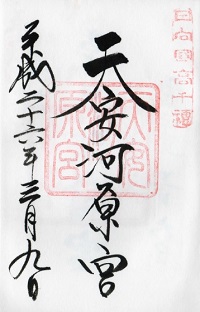 日向國高千穂
天安河原宮
平成二十六年三月九日